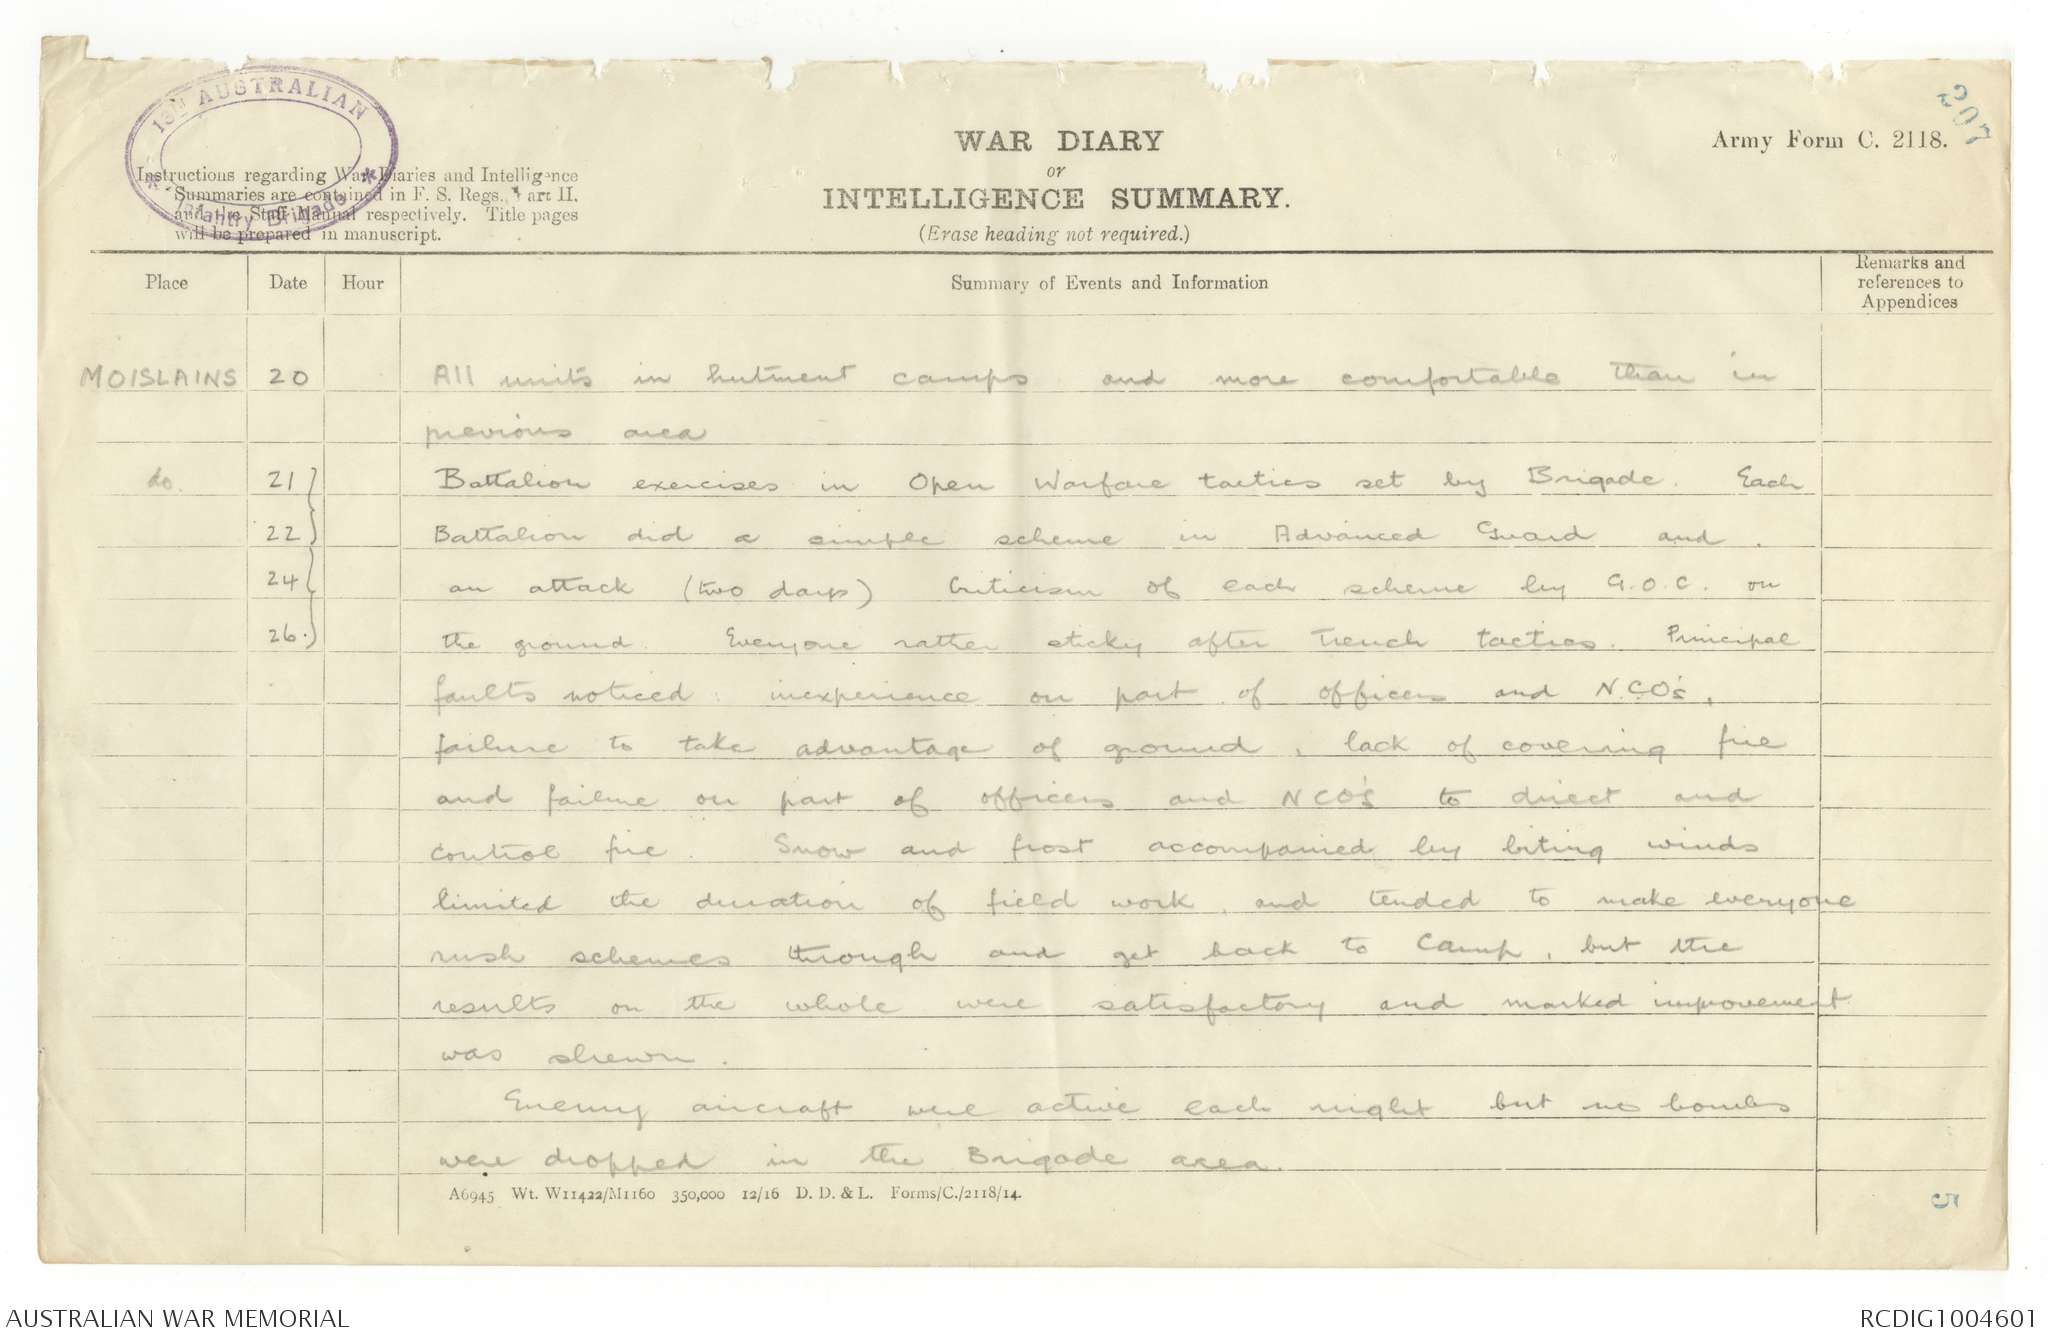 13TH AUSTRALIAN
* Infantry Brigade *
207
WAR DIARY
or
INTELLIGENCE SUMMARY.
(Erase heading not required.)
Army Form C. 2118.
Instructions regarding War Diaries and Intelligence
Summaries are contained in F. S. Regs., Part II.
and the Staff Manual respectively. Title pages
will be prepared in manuscript.
Place Date Hour Summary of Events and Information Remarks and
references to
Appendices
MOISLAINS 20 All units in hutment camps and more comfortable than in
previous area
do. 21 Battalion exercises in Open Warfare tactics set by Brigade. Each
22 Battalion did a simple scheme in Advanced Guard and
24 an attack (two days) Criticism of each scheme by G.O.C. on
26. the ground. Everyone rather sticky after Trench tactics. Principal
faults noticed: inexperience on part of officers and N.C.O's,
failure to take advantage of ground, lack of covering fire
and failure on part of officers and NCO's to direct and
control fire. Snow and frost accompanied by biting winds
limited the duration of field work, and tended to make everyone
rush schemes through and get back to Camp, but the
results on the whole were satisfactory and marked improvement
was shewn.
Enemy aircraft were active each night but no bombs
were dropped in the Brigade area.
A6945 Wt. W11422/M1160 350,000 12/16 D. D. & L. Forms/C./2118/14.
5
AUSTRALIAN WAR MEMORIAL
RCDIG1004601